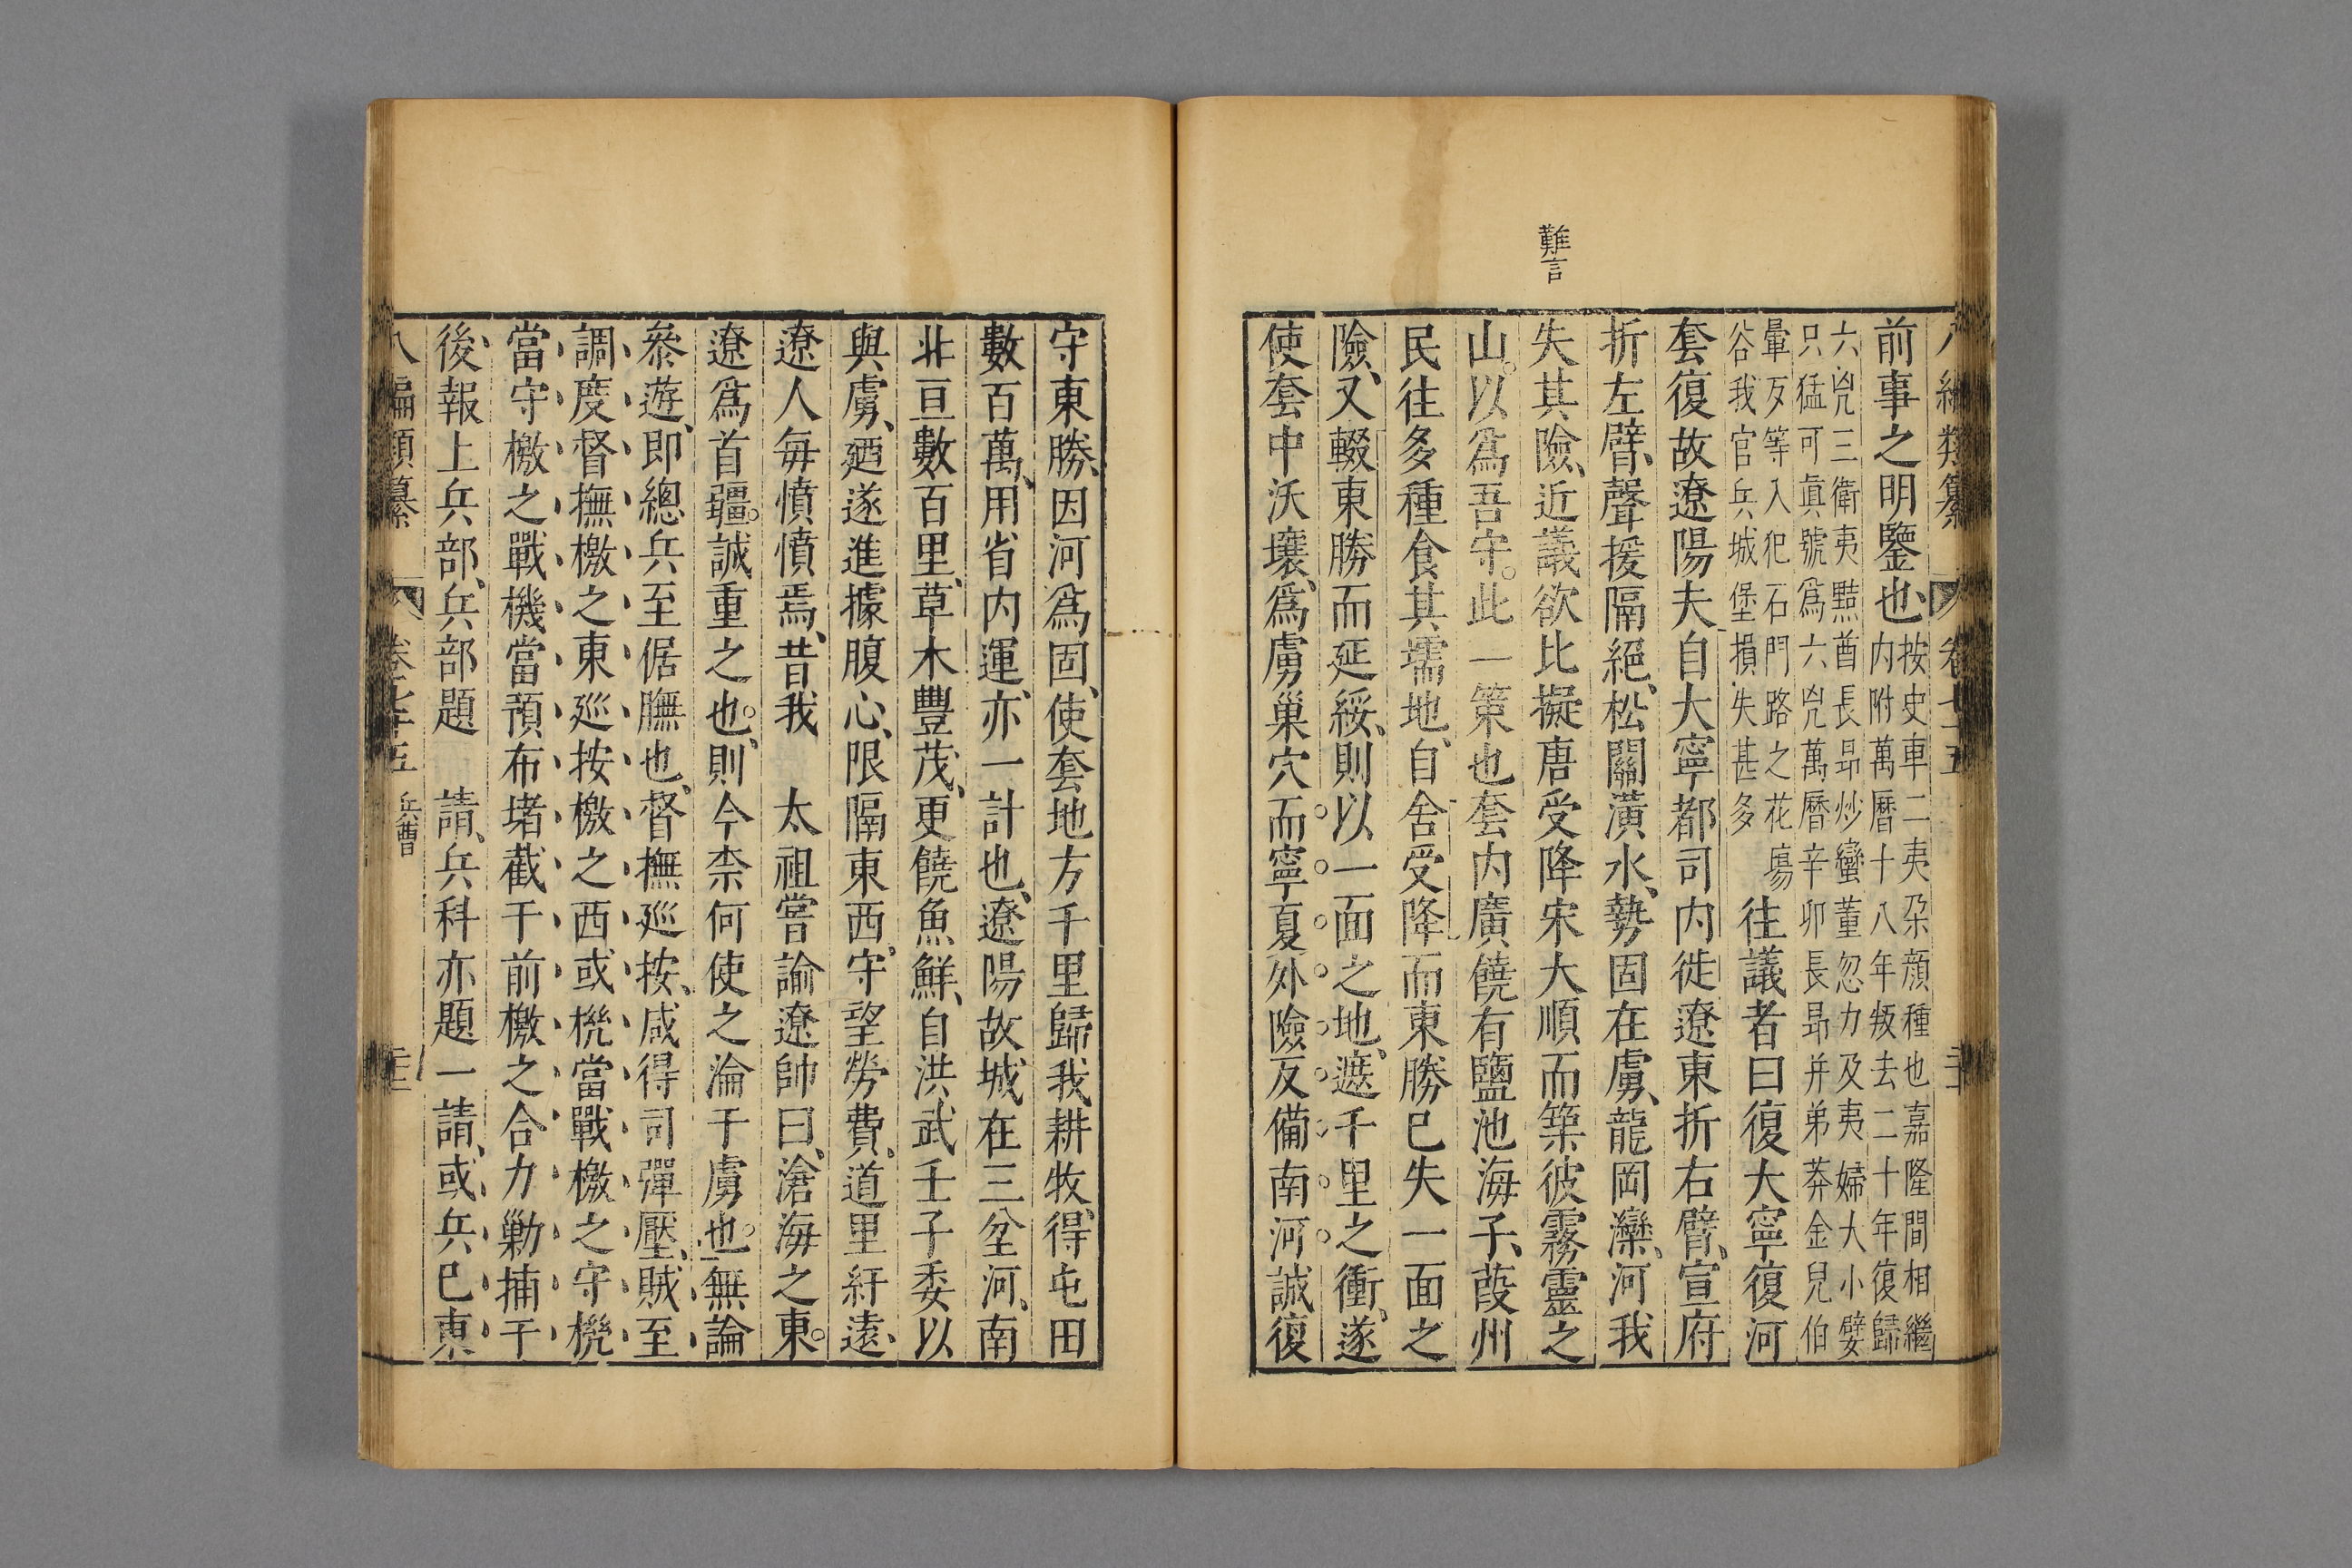 難言
前事之明鑒也
按史車二夷朶顔種也嘉隆間相繼
内附萬曆十八年叛去二十年復歸
六兇三衛夷黠酋長昻炒蠻董忽力及夷婦大小嬖
只猛可眞號爲六兇萬曆辛卯長昻并弟莽金兒伯
暈歹等入犯石門路之花塲
谷我官兵城堡損失甚多
往議者曰復大寧復河
套復故遼陽夫自大寧都司内徙遼東折右臂宣府
折左臂聲援隔絕松關潢水勢固在虜龍岡灤河我
失其險近議欲比擬唐受降宋大順而築彼霧靈之
山以爲吾守此一策也套内廣饒有鹽池海子葭州
民往多種食其壖地自舍受降而東勝已失一面之
險又輟東勝而延綏則以一面之地遮千里之衝遂
使套中沃壤爲虜巢穴而寧夏外險反備南河誠復
守東勝因河爲固使套地方千里歸我耕牧得屯田
數百萬用省内運亦一計也遼陽故城在三坌河南
北亘數百里草木豐茂更饒魚鮮自洪武壬子委以
與虜廼遂進據腹心限隔東西守望勞費道里紆遠
遼人每憤憤焉昔我　太祖嘗諭遼帥曰滄海之東
遼爲首疆誠重之也則今柰何使之淪于虜也無論
叅遊即總兵至倨膴也督撫廵按咸得司彈壓賊至
調度督撫檄之東廵按檄之西或機當戰檄之守機
當守檄之戰機當預布堵截于前檄之合力勦捕于
後報上兵部兵部題　請兵科亦題一請或兵已東
八編類纂　卷七十五　兵曹